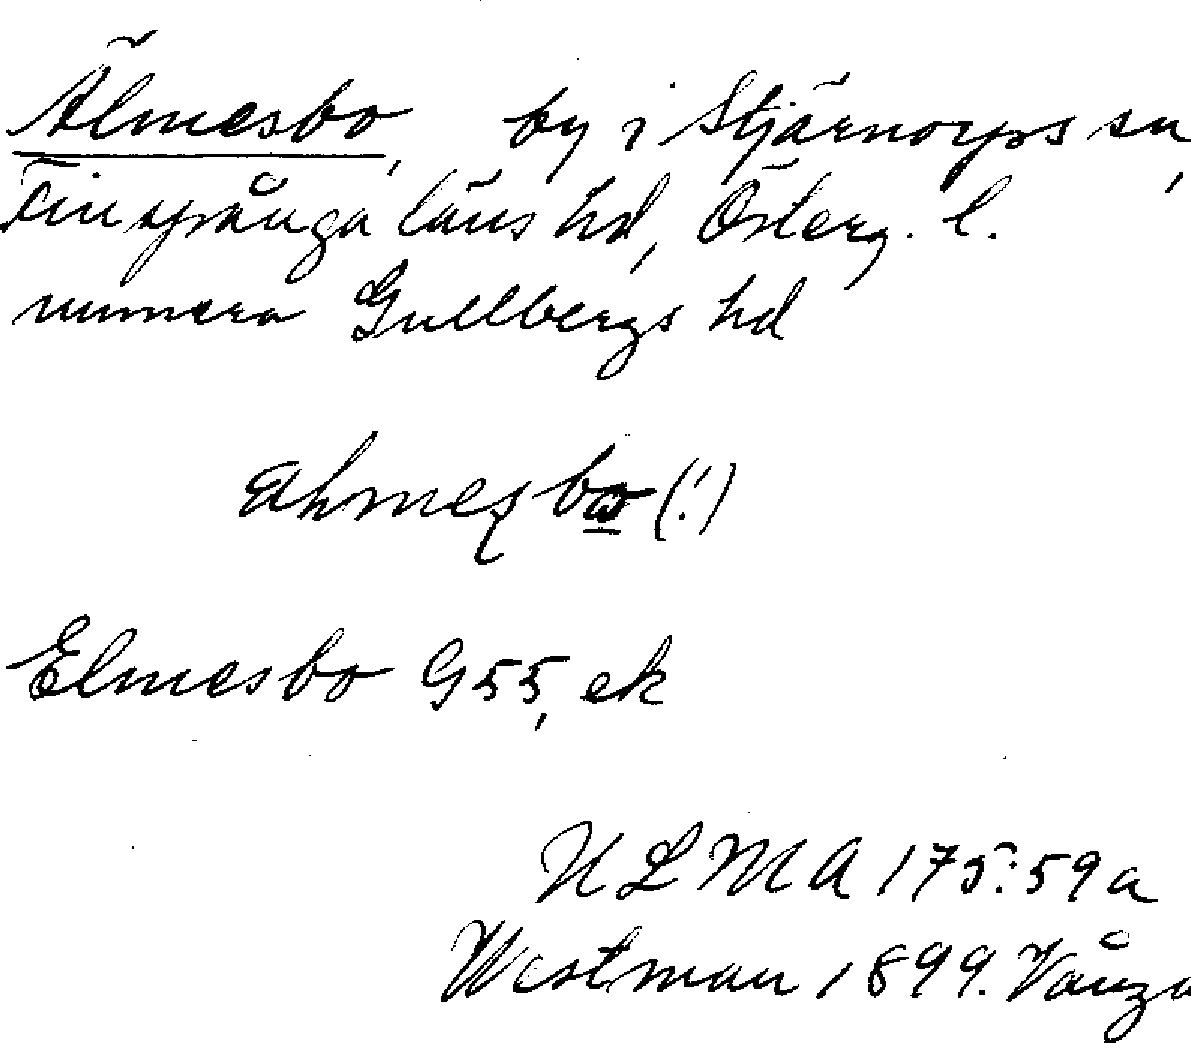 Älmesbo, by i Stjärnorps sn,
Finspånga läns hd, Österg. l.
numera Gullbergs hd
(!)
Elmesbo G55, ek
ULMA 175:59a
Westman 1899. Vånga